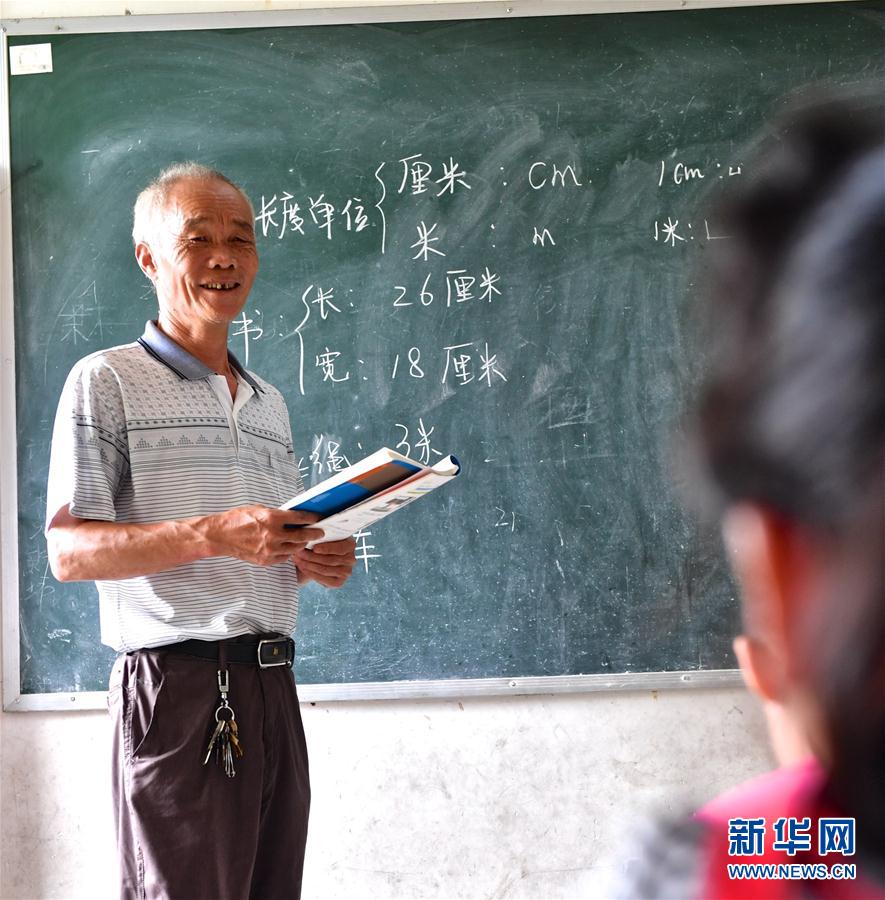 长度单位 厘米 : cm 1cm :
米 : m 1米 :
书 : 长 : 26厘米
宽 : 18厘米
绳 : 3米
车
新华网
WWW.NEWS.CN